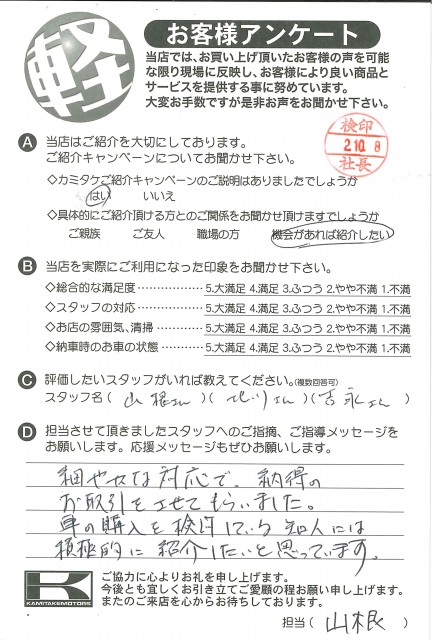 軽
お客様アンケート
当店では、お買い上げ頂いたお客様の声を可能
な限り現場に反映し、お客様により良い商品と
サービスを提供する事に努めています。
大変お手数ですが是非お声をお聞かせ下さい。
A 当店はご紹介を大切にしてあります。
ご紹介キャンペーンについてお聞かせ下さい。
検印
2.10.8
社長
◇カミタケご紹介キャンペーンのご説明はありましたでしょうか
はい いいえ
◇具体的にご紹介頂ける方とのご関係をお聞かせ頂けますでしょうか
ご親族 ご友人 職場の方 機会があれば紹介したい
B 当店を実際にご利用になった印象をお聞かせ下さい。
◇総合的な満足度……………5.大満足 4.満足 3.ふつう 2.やや不満 1.不満
◇スタッフの対応……………5.大満足 4.満足 3.ふつう 2.やや不満 1.不満
◇お店の雰囲気、清掃………5.大満足 4.満足 3.ふつう 2.やや不満 1.不満
◇納車時のお車の状態………5.大満足 4.満足 3.ふつう 2.やや不満 1.不満
C 評価したいスタッフがいれば教えてください。(複数回答可)
スタッフ名(山根さん)(さん)(吉永さん)
D 担当させて頂きましたスタッフへのご指摘、ご指導メッセージを
お願いします。応援メッセージもぜひお願いします。
細やかな対応で、納得の
お取引をさせてもらいました。
車の購入を検討している知人には
積極的に紹介したいと思っています。
K
KAMITAKEMOTORS
ご協力に心よりお礼を申し上げます。
今後とも宜しくお引き立てご愛顧の程お願い申し上げます。
またのご来店を心からお待ちしております。
担当(山根)